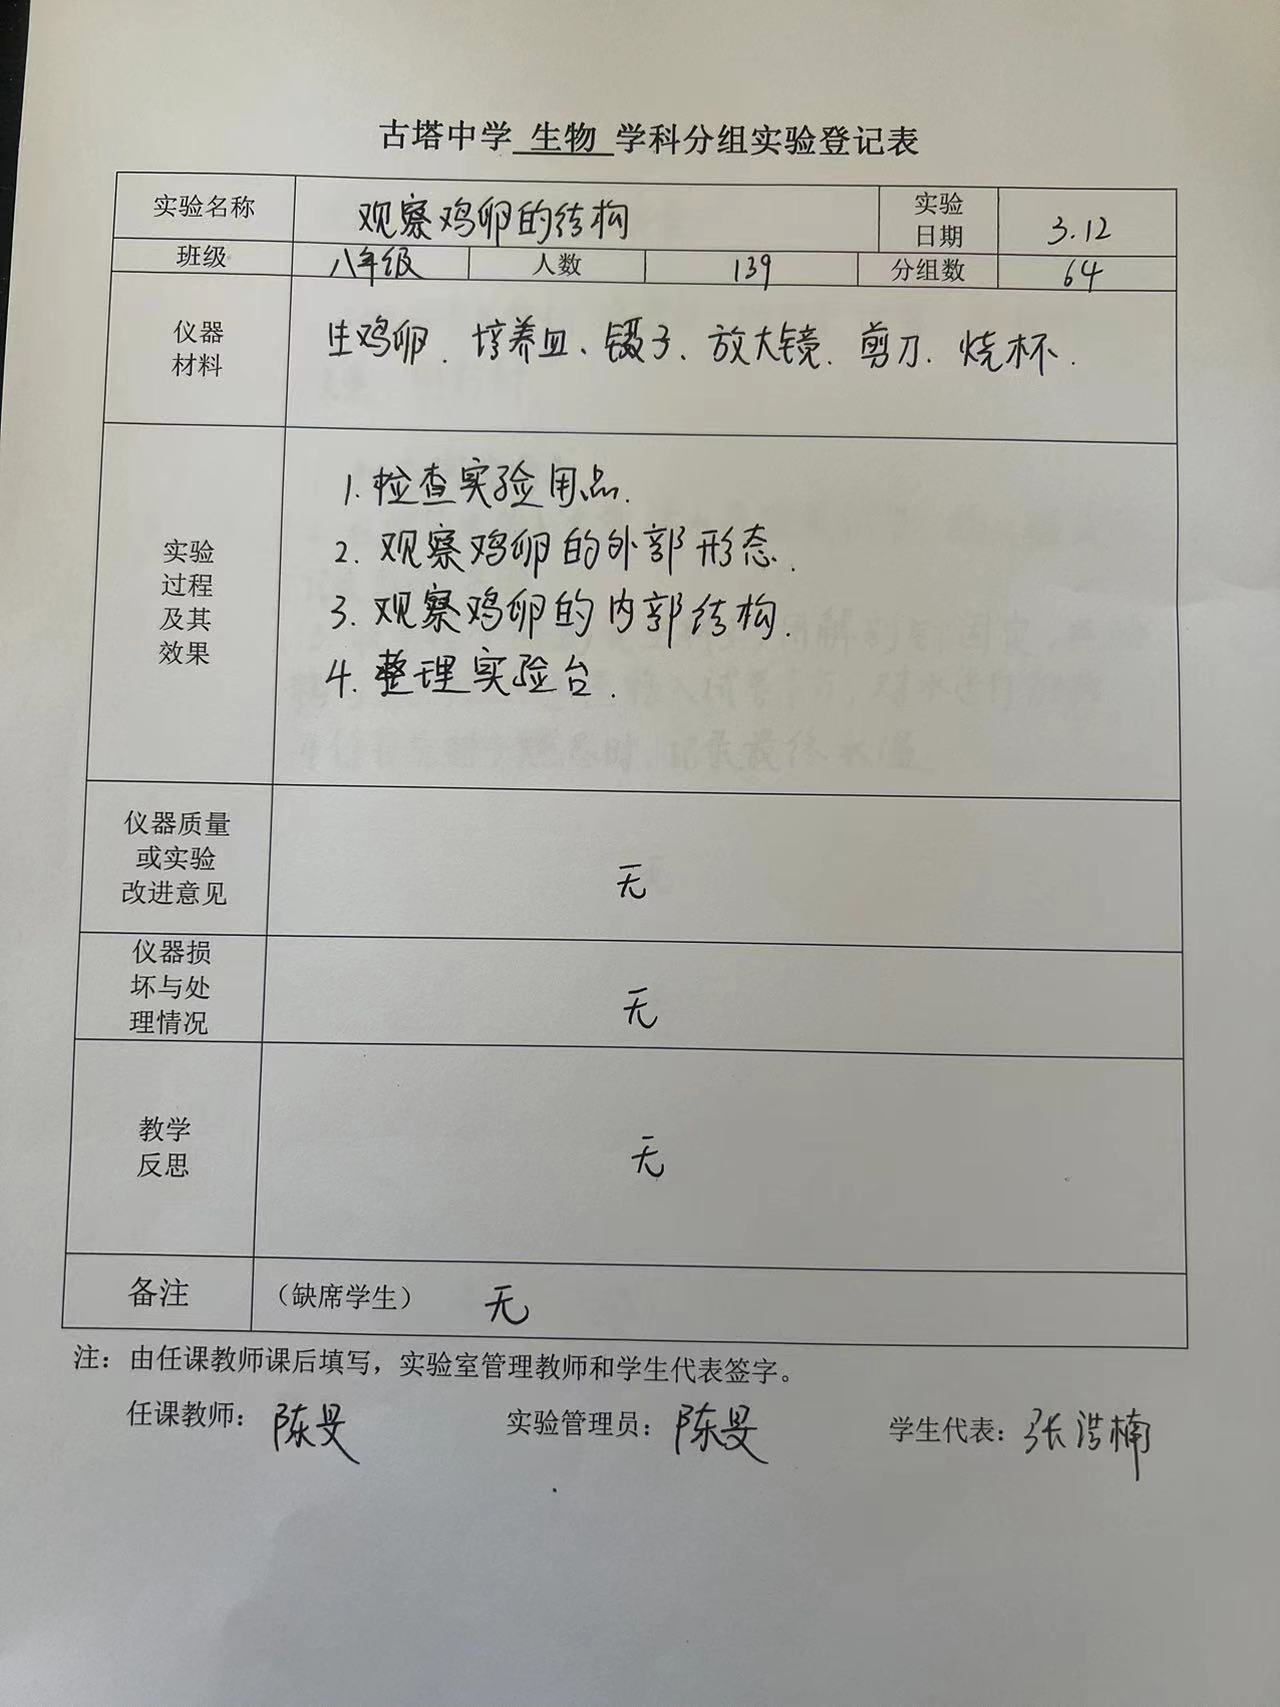 古塔中学 生物 学科分组实验登记表
实验名称 观察鸡卵的结构 实验日期 3.12
班级 八年级 人数 139 分组数 64
仪器材料 生鸡卵、培养皿、镊子、放大镜、剪刀、烧杯.
实验过程及其效果
1. 检查实验用品.
2. 观察鸡卵的外部形态.
3. 观察鸡卵的内部结构.
4. 整理实验台.
仪器质量或实验改进意见 无
仪器损坏与处理情况 无
教学反思 无
备注 （缺席学生） 无
注：由任课教师课后填写，实验室管理教师和学生代表签字。
任课教师：陈旻 实验管理员：陈旻 学生代表：张浩楠